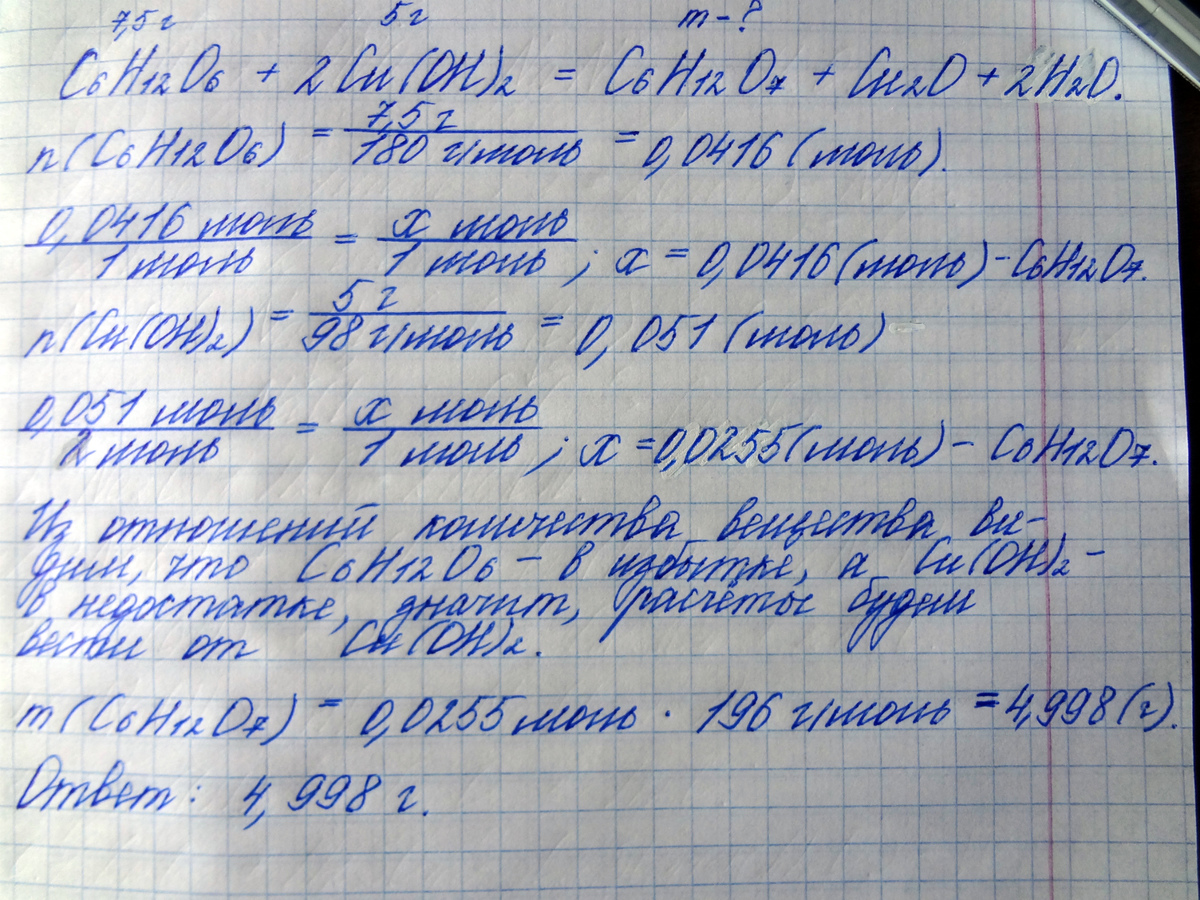 7,5 г 5 г m - ?
C6H12O6 + 2Cu(OH)2 = C6H12O7 + Cu2O + 2H2O.
n(C6H12O6) = 7,5 г / 180 г/моль = 0,0416 (моль).
0,0416 моль / 1 моль = x моль / 1 моль ; x = 0,0416 (моль) - C6H12O7.
n(Cu(OH)2) = 5 г / 98 г/моль = 0,051 (моль)
0,051 моль / 2 моль = x моль / 1 моль ; x = 0,0255 (моль) - C6H12O7.
Из отношений количества вещества ви-
дим, что C6H12O6 - в избытке, а Cu(OH)2 -
в недостатке, значит, расчёты будем
вести от Cu(OH)2.
m(C6H12O7) = 0,0255 моль · 196 г/моль = 4,998 (г).
Ответ: 4,998 г.